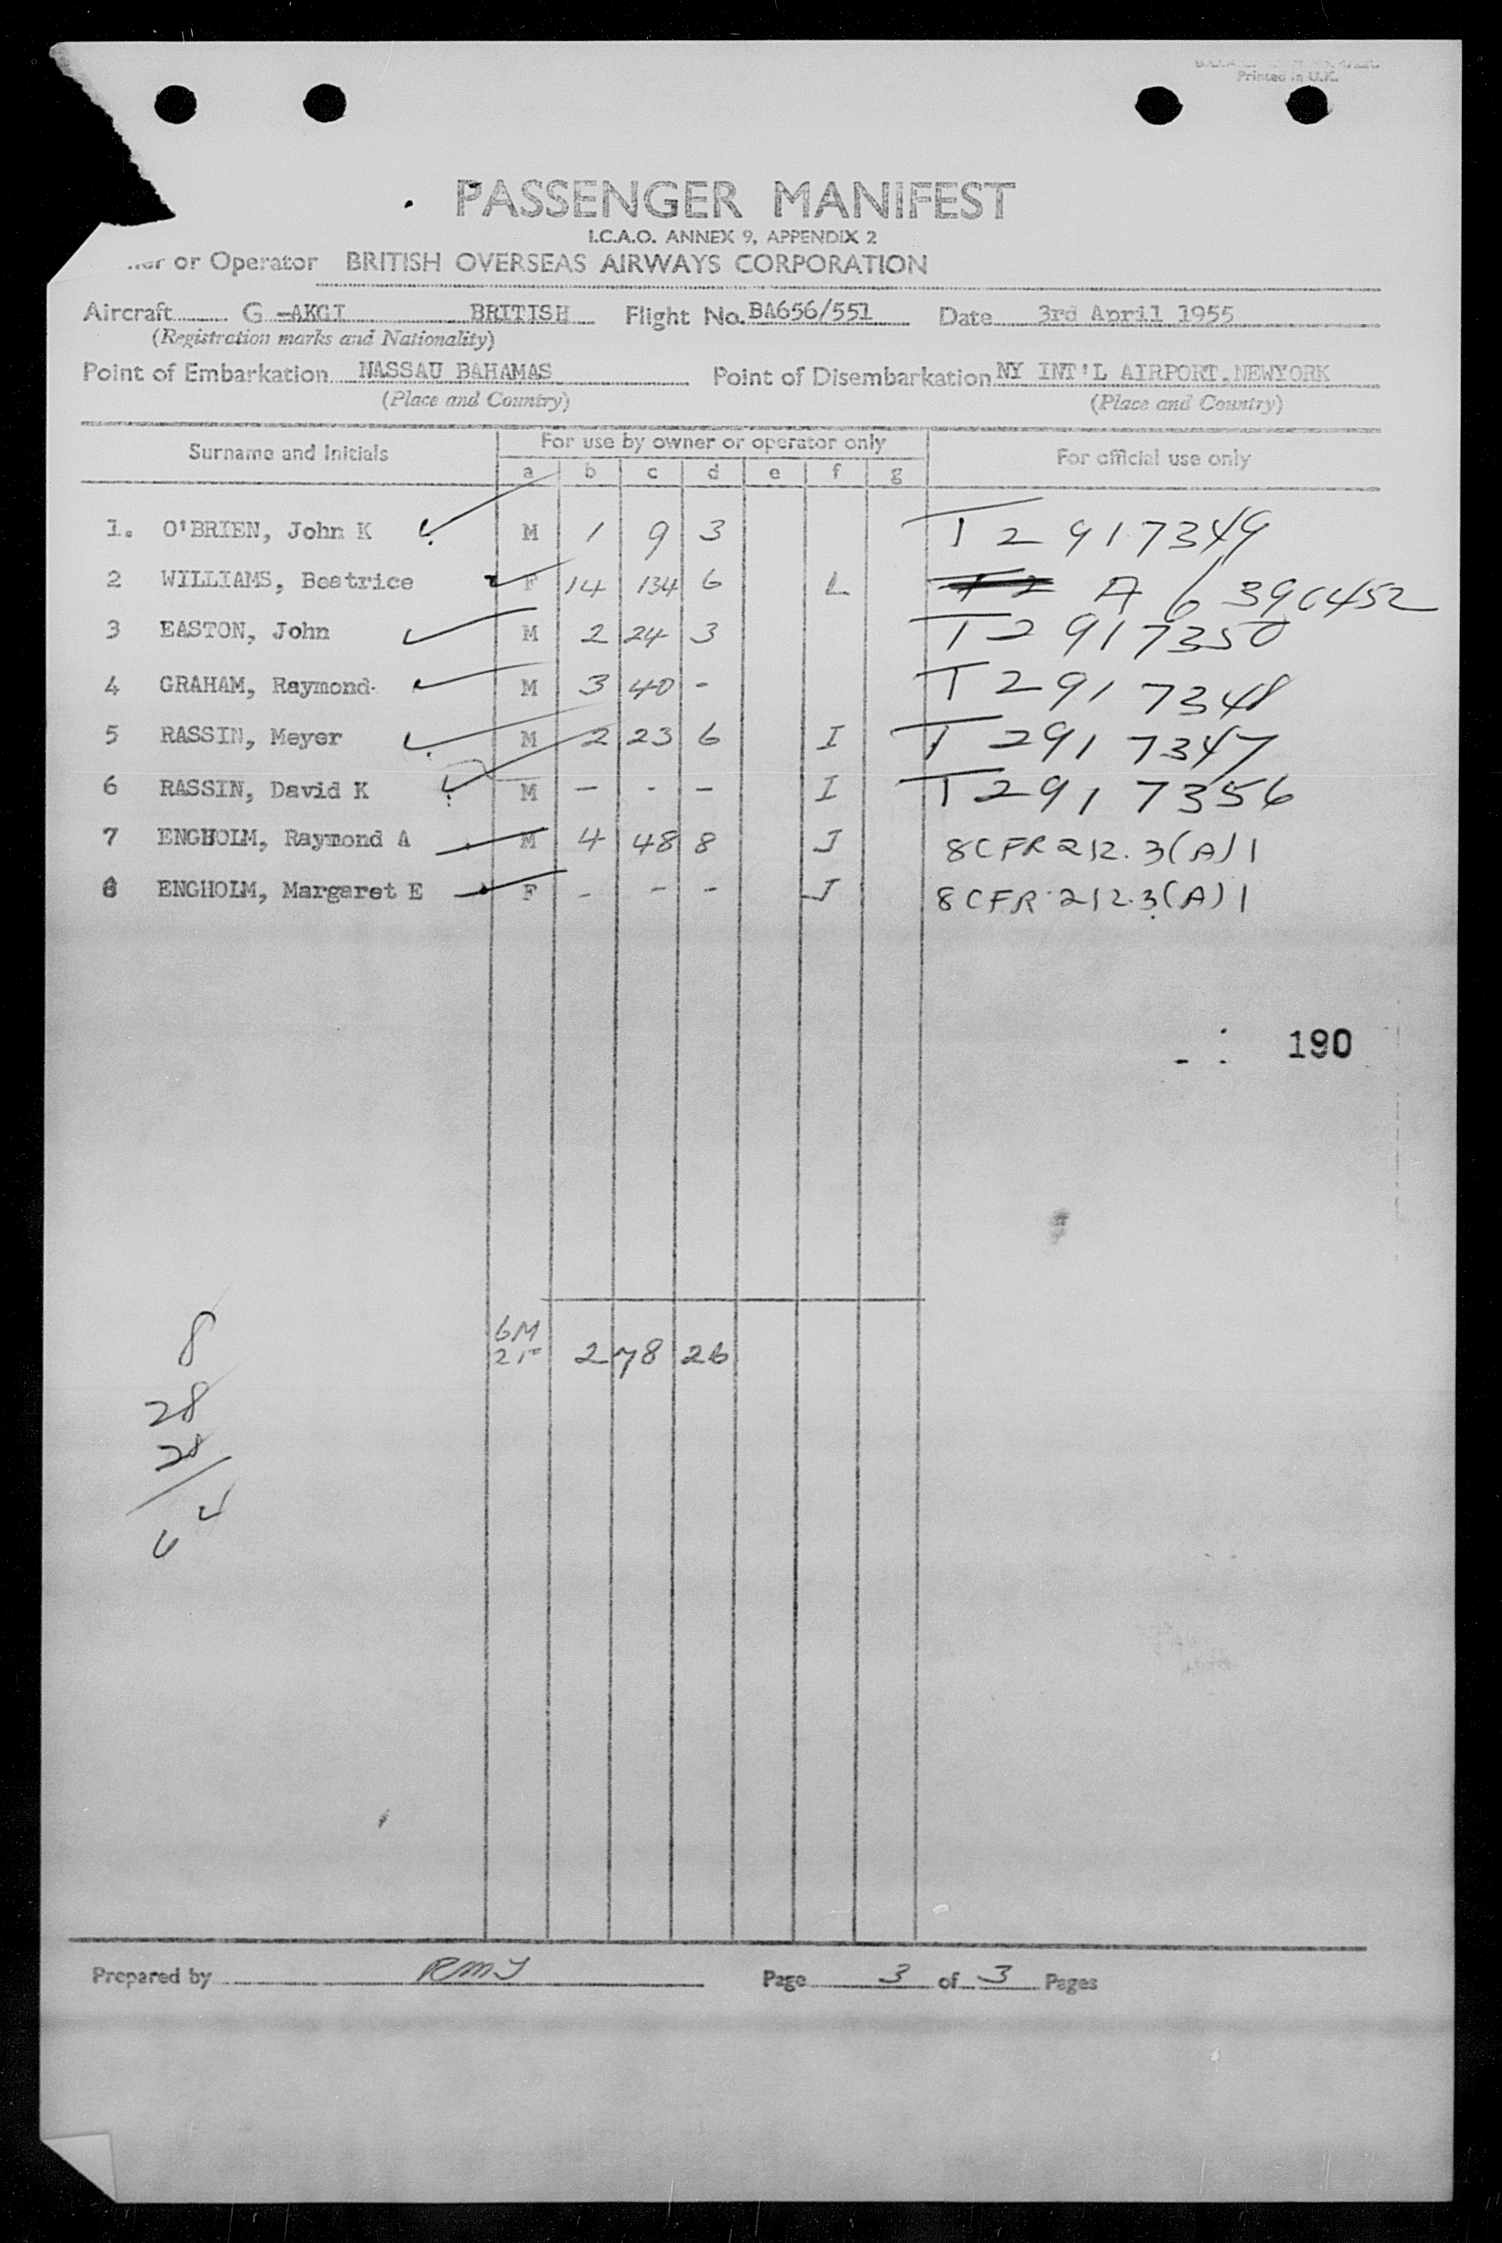 Printed in U.K.
PASSENGER MANIFEST
I.C.A.O. ANNEX 9, APPENDIX 2
or Operator BRITISH OVERSEAS AIRWAYS CORPORATION
Aircraft G -AKGI BRITISH Flight No. BA656/551 Date 3rd April 1955
(Registration marks and Nationality)
Point of Embarkation NASSAU BAHAMAS Point of Disembarkation NY INT'L AIRPORT. NEWYORK
(Place and Country) (Place and Country)
Surname and Initials For use by owner or operator only For official use only
a b c d e f g
1. O'BRIEN, John K M 1 9 3 T2 917349
2 WILLIAMS, Beatrice F 14 134 6 L A 6 390452
3 EASTON, John M 2 24 3 T2 917350
4 GRAHAM, Raymond M 3 40 - T2917348
5 RASSIN, Meyer M 2 23 6 I T2917347
6 RASSIN, David K M - - - I T2917356
7 ENGHOLM, Raymond A M 4 48 8 I 8CFR 212.3(A)1
8 ENGHOLM, Margaret E F - - - I 8CFR 212.3(A)1
190
6M
2F 278 26
8
28
28
Prepared by RMJ Page 3 of 3 Pages